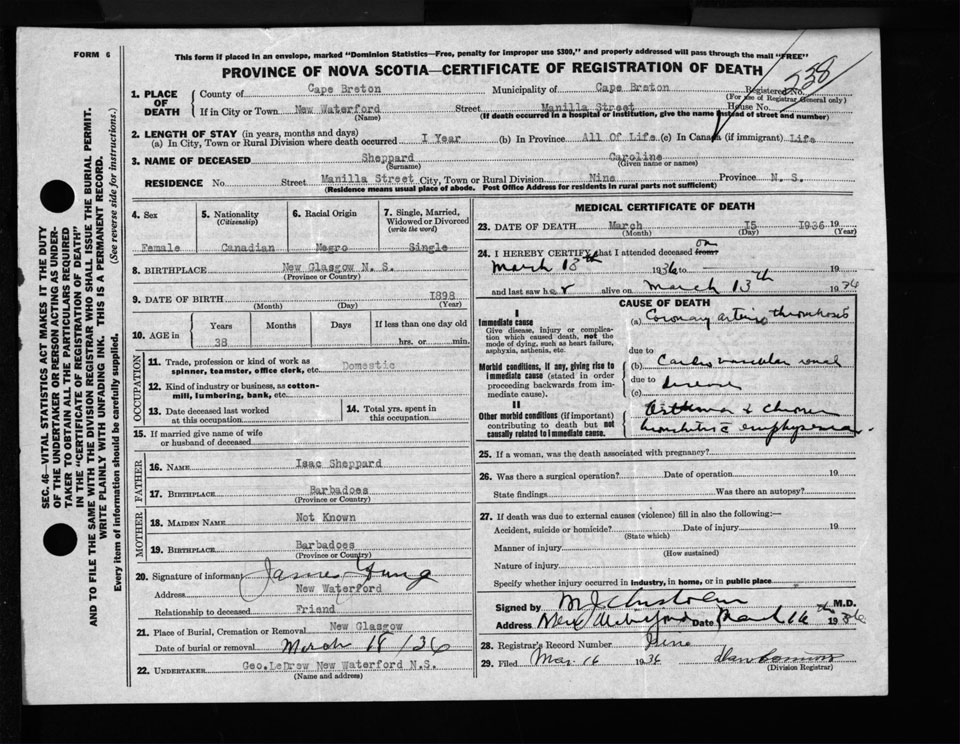 FORM 6
This form if placed in an envelope, marked "Dominion Statistics—Free, penalty for improper use $300," and properly addressed will pass through the mail "FREE"
PROVINCE OF NOVA SCOTIA—CERTIFICATE OF REGISTRATION OF DEATH
538
1. PLACE OF DEATH
County of Cape Breton Municipality of Cape Breton Registered No.
(For use of Registrar General only)
If in City or Town New Waterford Street Manilla Street House No.
(Name) (If death occurred in a hospital or institution, give the name instead of street and number)
2. LENGTH OF STAY (in years, months and days)
(a) In City, Town or Rural Division where death occurred I Year (b) In Province All Of Life (c) In Canada (if immigrant) Life
3. NAME OF DECEASED Sheppard Caroline
(Surname) (Given name or names)
RESIDENCE No. Street Manilla Street City, Town or Rural Division Nine Province N. S.
(Residence means usual place of abode. Post Office Address for residents in rural parts not sufficient)
SEC. 46—VITAL STATISTICS ACT MAKES IT THE DUTY
OF THE UNDERTAKER OR PERSON ACTING AS UNDER-
TAKER TO OBTAIN ALL THE PARTICULARS REQUIRED
IN THE "CERTIFICATE OF REGISTRATION OF DEATH"
AND TO FILE THE SAME WITH THE DIVISION REGISTRAR WHO SHALL ISSUE THE BURIAL PERMIT.
WRITE PLAINLY WITH UNFADING INK. THIS IS A PERMANENT RECORD.
Every item of information should be carefully supplied. (See reverse side for instructions.)
4. Sex
Female
5. Nationality
(Citizenship)
Canadian
6. Racial Origin
Negro
7. Single, Married,
Widowed or Divorced
(write the word)
Single
8. BIRTHPLACE New Glasgow N. S.
(Province or Country)
9. DATE OF BIRTH 1898
(Month) (Day) (Year)
10. AGE in
Years Months Days If less than one day old
38 hrs. or min.
OCCUPATION
11. Trade, profession or kind of work as
spinner, teamster, office clerk, etc. Domestic
12. Kind of industry or business, as cotton-
mill, lumbering, bank, etc.
13. Date deceased last worked
at this occupation
14. Total yrs. spent in
this occupation
15. If married give name of wife
or husband of deceased
FATHER
16. NAME Isac Sheppard
17. BIRTHPLACE Barbadoes
(Province or Country)
MOTHER
18. MAIDEN NAME Not Known
19. BIRTHPLACE Barbadoes
(Province or Country)
20. Signature of informant James
Address New Waterford
Relationship to deceased Friend
21. Place of Burial, Cremation or Removal New Glasgow
Date of burial or removal March 18/36
22. UNDERTAKER Geo. LeDrew New Waterford N.S.
(Name and address)
MEDICAL CERTIFICATE OF DEATH
23. DATE OF DEATH March I5 1936 19
(Month) (Day) (Year)
24. I HEREBY CERTIFY that I attended deceased from on
March 13th 1936 to 19
and last saw her alive on March 13th 1936
CAUSE OF DEATH
I
Immediate cause
Give disease, injury or complica-
tion which caused death, not the
mode of dying, such as heart failure,
asphyxia, asthenia, etc.
(a) Coronary artery thrombosis
due to
Morbid conditions, if any, giving rise to
immediate cause (stated in order
proceeding backwards from im-
mediate cause).
(b) Cardio vascular renal
due to disease
(c)
II
Other morbid conditions (if important)
contributing to death but not
causally related to immediate cause.
Asthma & chronic
bronchitis emphysema.
25. If a woman, was the death associated with pregnancy?
26. Was there a surgical operation? Date of operation 19
State findings Was there an autopsy?
27. If death was due to external causes (violence) fill in also the following:—
Accident, suicide or homicide? Date of injury 19
(State which)
Manner of injury
(How sustained)
Nature of injury
Specify whether injury occurred in industry, in home, or in public place
Signed by M J Chisholm M.D.
Address New Waterford Date March 16th 1936
28. Registrar's Record Number Nine
29. Filed Mar 16 1936
(Division Registrar)